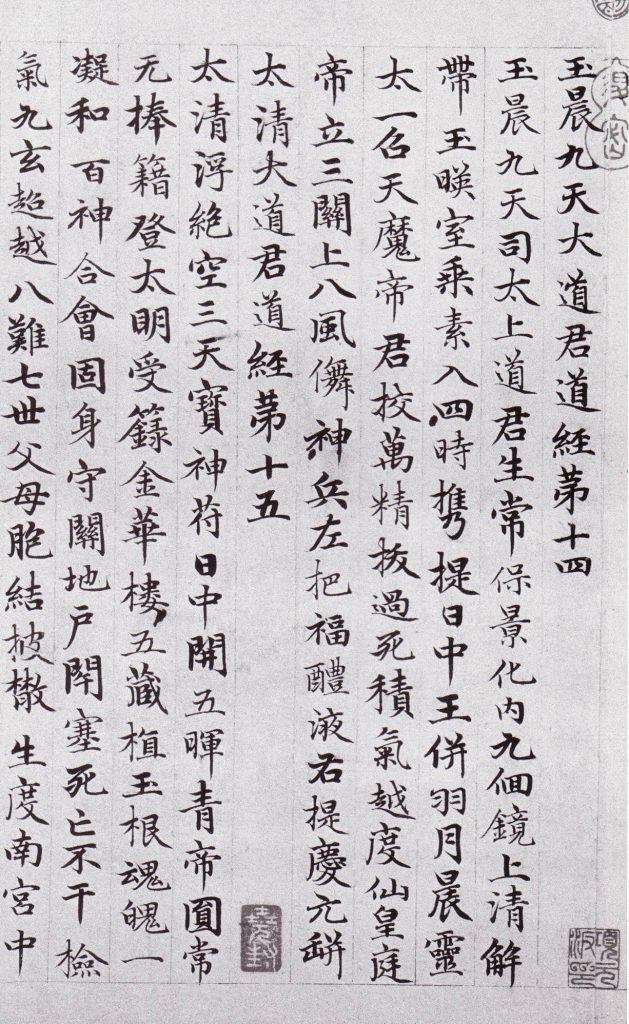 玉晨九天大道君道經苐十四
玉晨九天司太上道君生常保景化内九回鏡上清解
帶玉暎室乗素入四時携提日中王併羽月晨靈
太一召天魔帝君挍萬精拔過死積氣越度仙皇庭
帝立三關上八風儛神兵左把福醴液右提慶元缾
太清大道君道經苐十五
太清浮絶空三天寳神苻日中開五暉青帝圓常
无捧籍登太明受籙金華樓五藏植玉根魂魄一
凝和百神合會固身守關地户閇塞死亡不干檢
氣九玄超越八難七世父母胞結披散生度南宫中